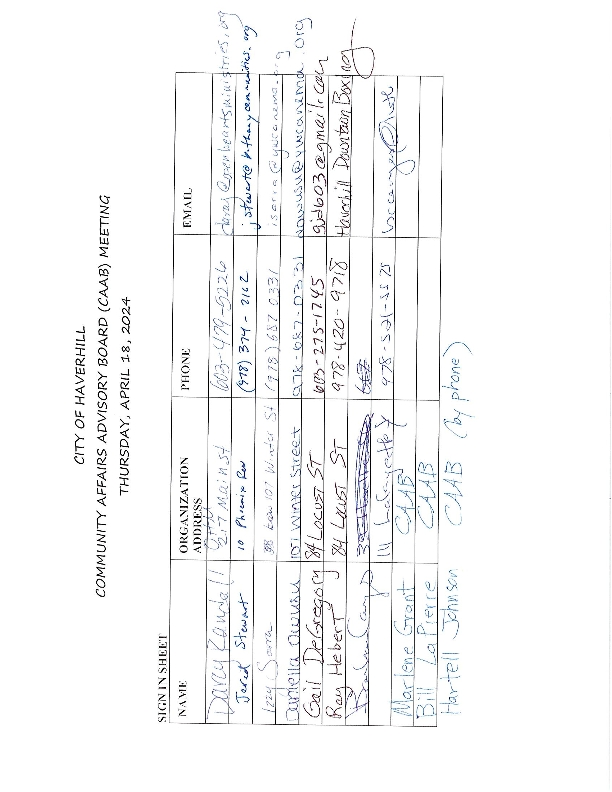 CITY OF HAVERHILL
COMMUNITY AFFAIRS ADVISORY BOARD (CAAB) MEETING
THURSDAY, APRIL 18, 2024
SIGN IN SHEET
NAME ORGANIZATION ADDRESS PHONE EMAIL
Darcy 217 Main st 603-479-5226 darcy@openheartsministries.org
Jared Stewart 10 Phoenix Row (978) 374-2162 jstewart@bethanycommunities.org
Izzy 107 Winter St (978) 687 0331 @ywcanema.org
Daniella Owusu 107 Winter Street 978-687-0331 dowusu@ywcanema.org
Gail DeGregory 84 Locust ST 603-275-1745 gid603@gmail.com
Ray Hebert 84 Locust ST 978-420-9718 Haverhill Downtown Boxing
111 Lafayette 978-521-5575
Marlene Grant CAAB
Bill LaPierre CAAB
Hartell Johnson CAAB (by phone)